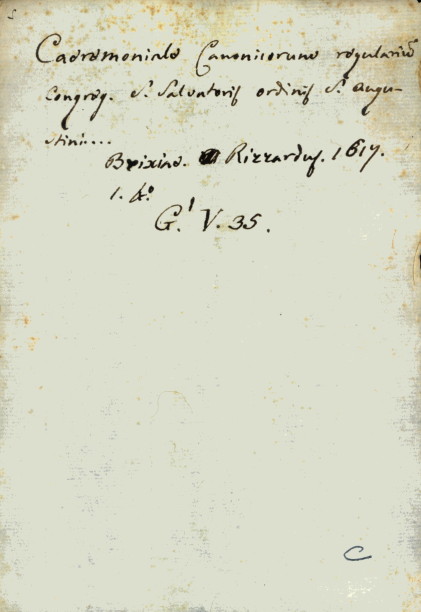 s
Caeremoniale Canonicorum regulariũ
Congreg. S. Salvatoris ordinis S. Augu-
stini...
Brixiae. Rizzardus. 1617.
1. 4.º
G.¹ V. 35.
C